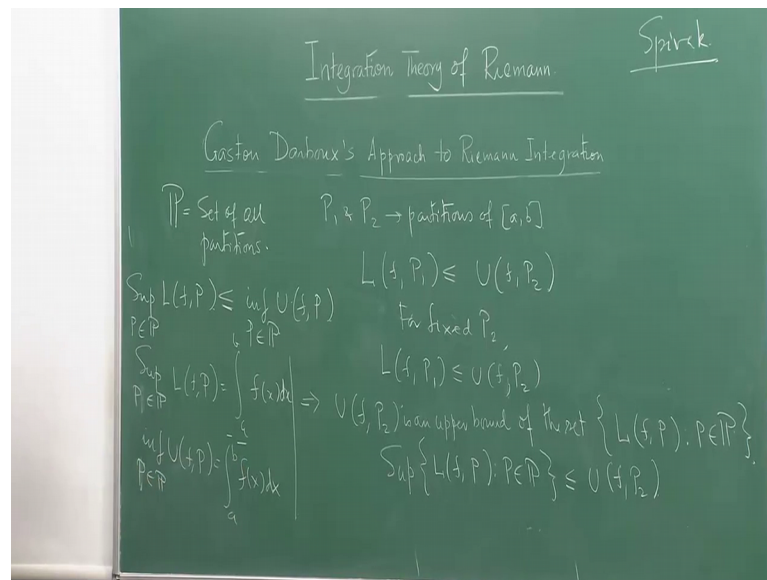 Spivak
Integration Theory of Riemann
Gaston Darboux's Approach to Riemann Integration
ℙ = Set of all
partitions.
P₁ & P₂ → partitions of [a,b]
L(f,P₁) ≤ U(f,P₂)
For fixed P₂,
L(f,P₁) ≤ U(f,P₂)
⇒ U(f,P₂) is an upper bound of the set {L(f,P) : P∈ℙ}.
Sup{L(f,P) : P∈ℙ} ≤ U(f,P₂)
Sup L(f,P) ≤ inf U(f,P)
P∈ℙ P∈ℙ
Sup L(f,P) = ∫_a^b f(x)dx
P∈ℙ
inf U(f,P) = ∫_a^b̄ f(x)dx
P∈ℙ